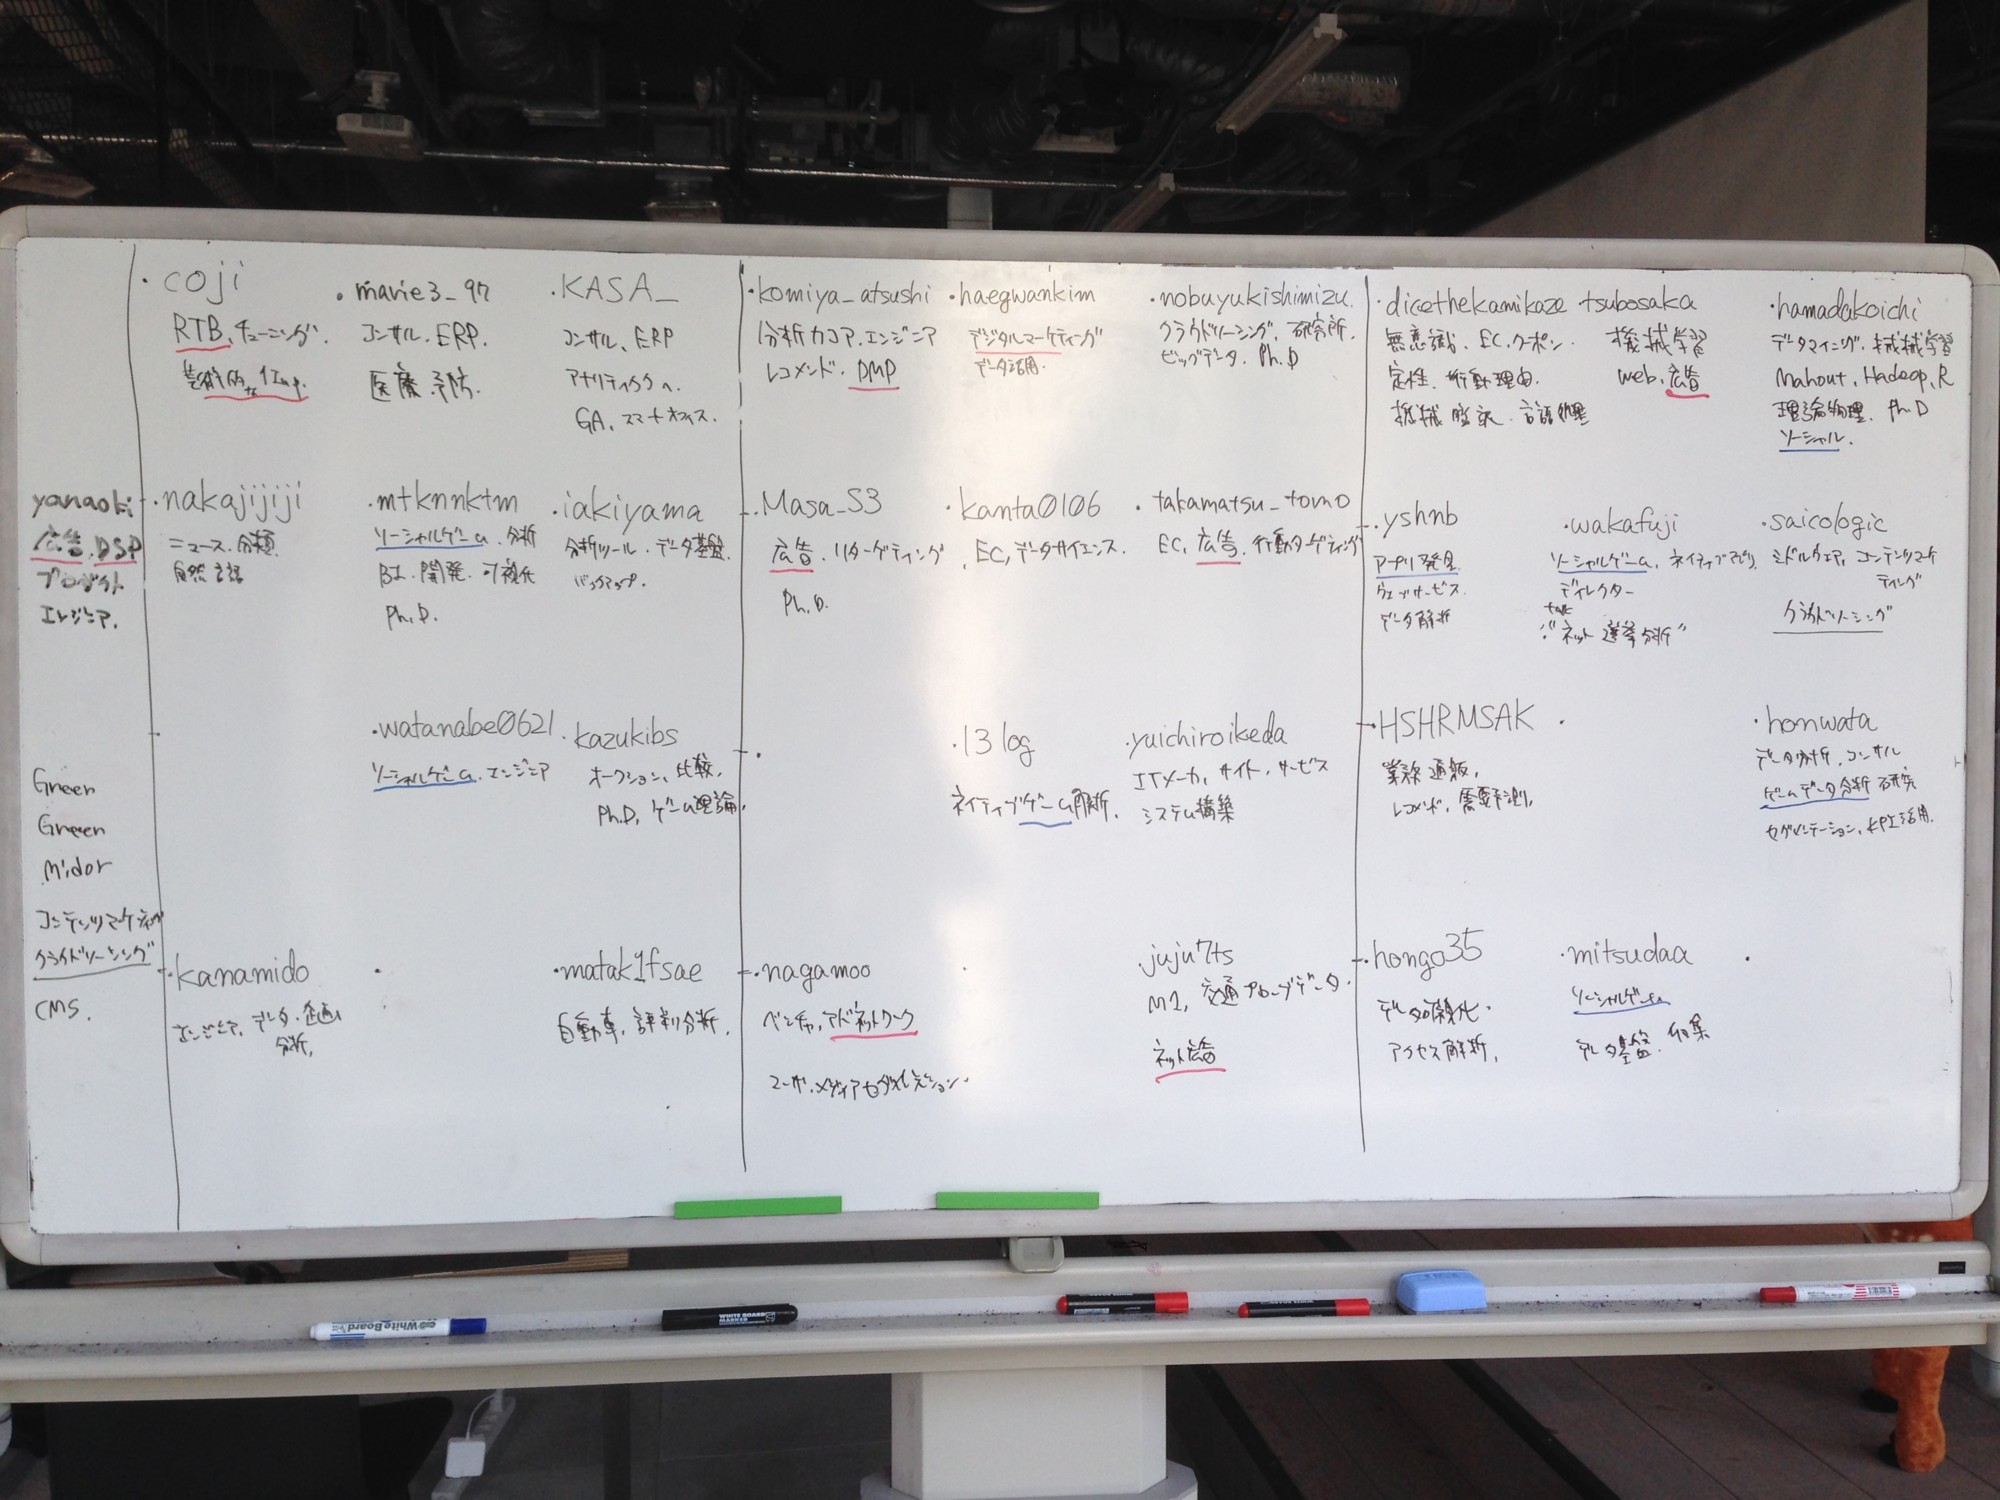 yanaoki
広告. DSP
プロダクト
エンジニア.
Green
Green
midor
コンテンツマーケティング
クラウドソーシング
CMS.
・coji
RTB, チューニング.
・marie3_97
コンサル. ERP.
医療. 予防.
・KASA_
コンサル、ERP
アナリティクス
GA, スマートオフィス.
・nakajijiji
ニュース. 分類
自然言語
・mtknnktm
ソーシャルゲーム. 分析
BI. 開発. 可視化
Ph.D.
・iakiyama
分析ツール. データ基盤.
バックアップ.
・watanabe0621
ソーシャルゲーム. エンジニア
・kazukibs
オークション, 比較,
Ph.D, ゲーム理論,
・kanamido
エンジニア, データ. 企画
分析,
・matak1fsae
自動車, 評判分析,
・komiya_atsushi
分析力コア. エンジニア
レコメンド. DMP
・haegwankim
デジタルマーケティング
データ活用.
・nobuyukishimizu.
クラウドソーシング, 研究所.
ビッグデータ. Ph.D
・Masa_S3
広告. リターゲティング
Ph.D.
・kanta0106
EC, データサイエンス.
・takamatsu_tomo
EC, 広告. 行動ターゲティング
・13log
ネイティブゲーム解析.
・yuichiroikeda
ITメーカ, サイト. サービス
システム構築
・nagamoo
ベンチャ, アドネットワーク
ユーザ.メディア
・juju7ts
M1, 交通プローブデータ.
ネット広告
・dicethekamikaze
無意識. EC. クーポン.
定性. 行動理由.
機械 翻訳. 言語処理
・tsubosaka
機械学習
web, 広告
・hamadakoichi
データマイニング. 機械学習
Mahout, Hadoop, R
理論物理. Ph.D
ソーシャル.
・yshnb
アプリ発見
ウェブサービス.
データ解析
・wakafuji
ソーシャルゲーム, ネイティブアプリ
ディレクター
talk
:"ネット選挙分析"
・saicologic
ミドルウェア, コンテンツマーケ
ティング
クラウドソーシング
・HSHRMSAK
業務 通販,
レコメンド, 需要予測,
・honwata
データ分析. コンサル
ゲームデータ分析 研究
セグメンテーション, KPI活用.
・hongo35
データ可視化.
アクセス解析,
・mitsudaa
ソーシャルゲーム
データ基盤. 収集
WhiteBoard
WHITE BOARD
MARKER